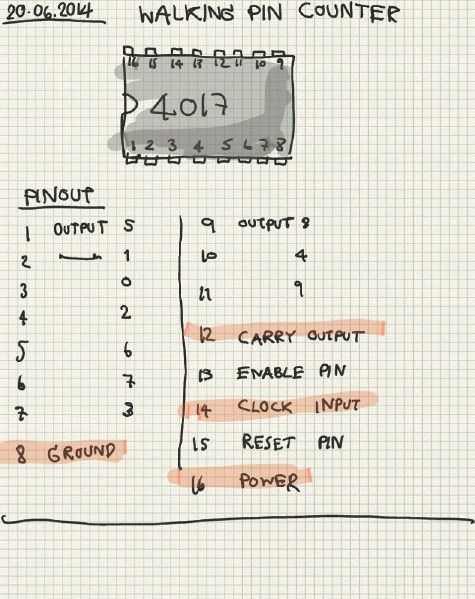 20.06.2014 WALKING PIN COUNTER
16 15 14 13 12 11 10 9
4017
1 2 3 4 5 6 7 8
PINOUT
1 OUTPUT 5
2 1
3 0
4 2
5 6
6 7
7 3
8 GROUND
9 OUTPUT 8
10 4
11 9
12 CARRY OUTPUT
13 ENABLE PIN
14 CLOCK INPUT
15 RESET PIN
16 POWER